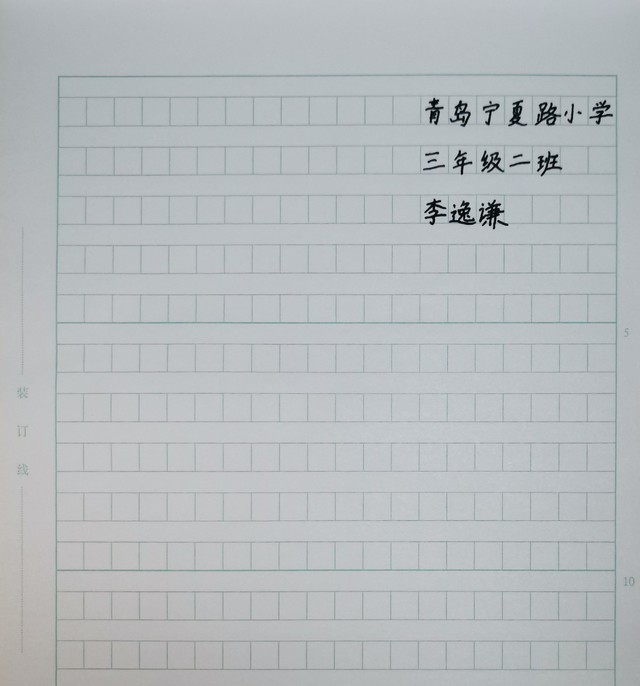 青岛宁夏路小学
三年级二班
李逸谦
5
装
订
线
10